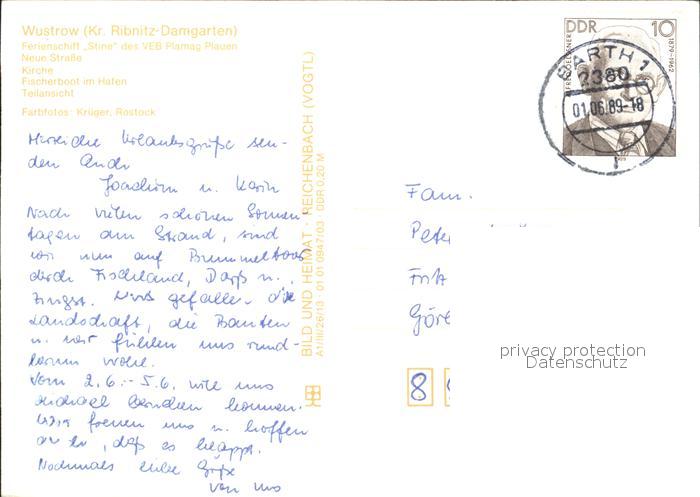 Wustrow (Kr. Ribnitz-Damgarten)
Ferienschiff „Stine" des VEB Plamag Plauen
Neue Straße
Kirche
Fischerboot im Hafen
Teilansicht
Farbfotos: Krüger, Rostock
Herzliche Urlaubsgrüße sen-
den Euch
Joachim u. Karin
Nach vielen schönen Sonnen-
tagen am Strand, sind
wir nun auf Bummeltour
durch Fischland, Darß u.
Zingst. Uns gefallen die
Landschaft, die Bauten
u. wir fühlen uns rund-
herum wohl.
Vom 2.6. - 5.6. will uns
Michael besuchen kommen.
Wir freuen uns u. hoffen
, daß es klappt.
Nochmals liebe Grüße
von uns
BILD UND HEIMAT · REICHENBACH (VOGTL)
A1/III/26/13 · 01 01 0947/03 DDR 0,20 M
DDR 10
1879-1962
BARTH 1
2380
01.06.89-18
Fam.
Pete
Fritz
Göre
8
privacy protection
Datenschutz